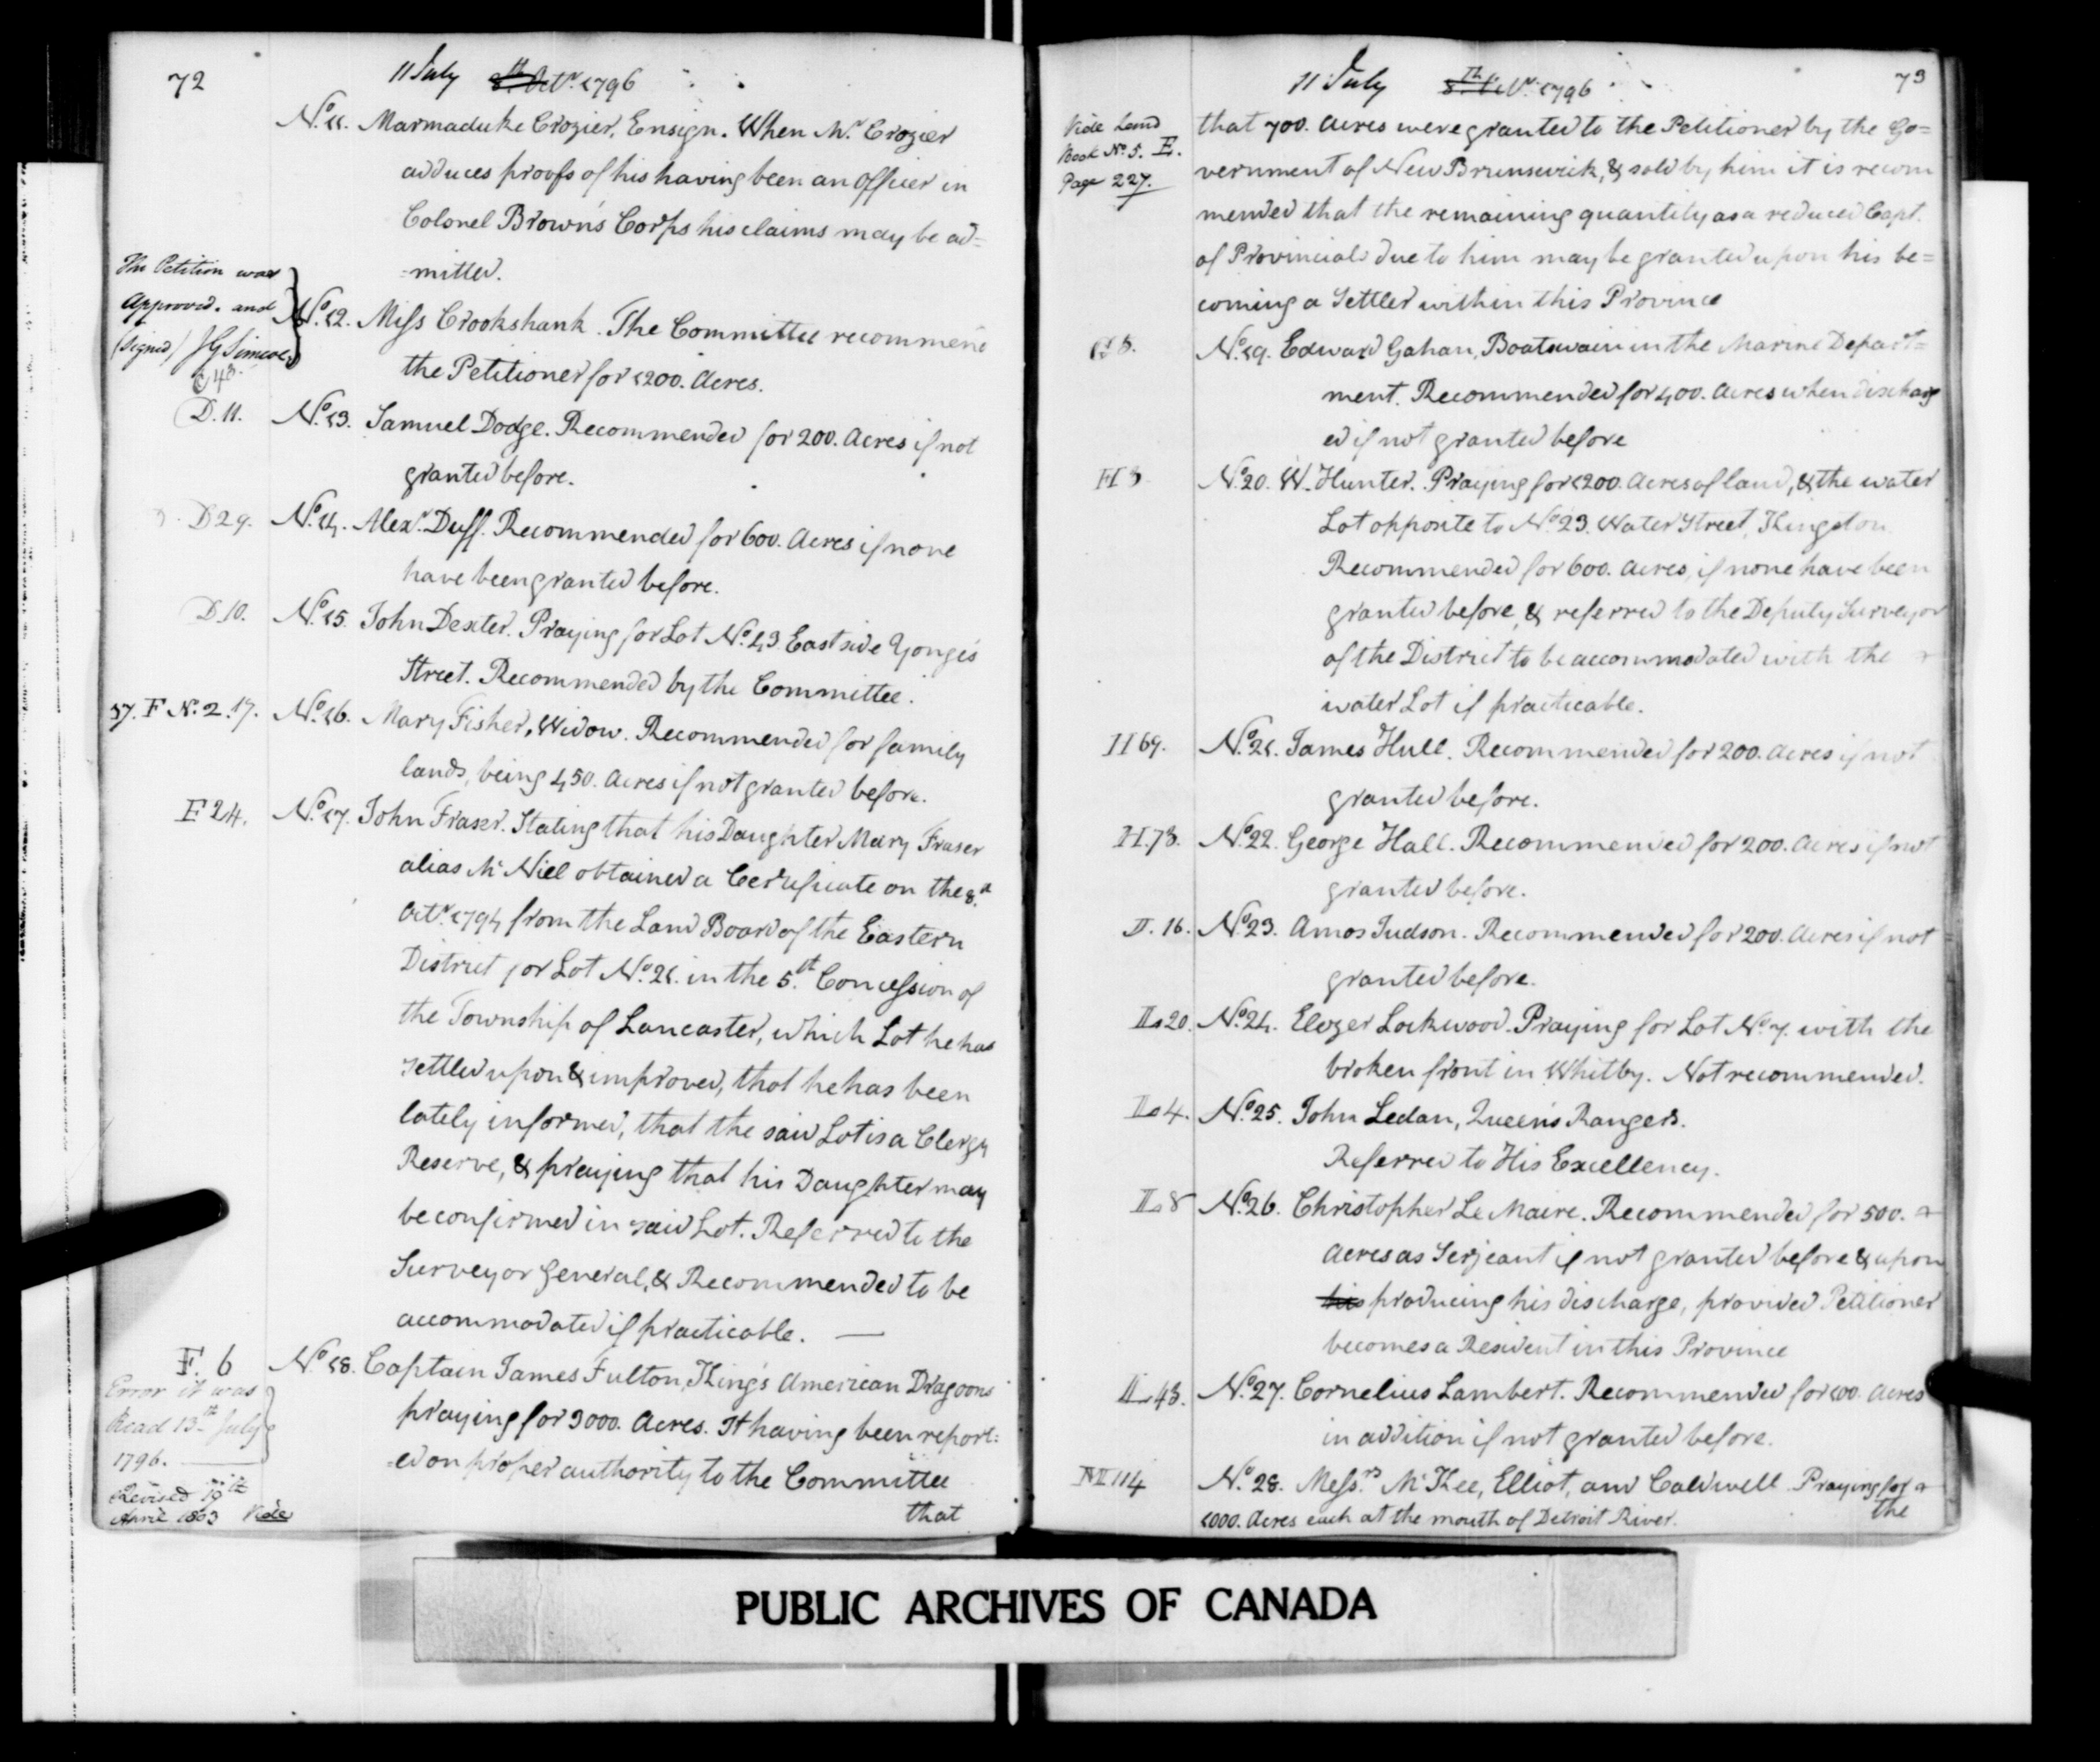 72
11 July 8th Octr. 1796
No. 11. Marmaduke Crozier, Ensign. When Mr. Crozier
adduces proofs of his having been an Officer in
Colonel Brown's Corps his claims may be ad=
=mitted.
The Petition was
Approved. and
(signed) J G Simcoe
C 43.
No. 12. Miss Crookshank. The Committee recommend
the Petitioner for 1200. Acres.
D. 11. No. 13. Samuel Dodge. Recommended for 200. Acres if not
granted before.
D 29. No. 14. Alexr. Duff. Recommended for 600. Acres if none
have been granted before.
D 10. No. 15. John Dexter. Praying for Lot No. 43. East side Yonge's
Street. Recommended by the Committee.
37. F No. 2. 17. No. 16. Mary Fisher, Widow. Recommended for family
lands, being 450. Acres if not granted before.
F 24. No. 17. John Fraser. Stating that his Daughter Mary Fraser
alias Mc Niel obtained a Certificate on the 8th
Octr. 1794 from the Land Board of the Eastern
District for Lot No. 21. in the 5th. Concession of
the Township of Lancaster, which Lot he has
settled upon & improved, that he has been
lately informed, that the said Lot is a Clergy
Reserve, & praying that his Daughter may
be confirmed in said Lot. Referred to the
Surveyor General, & Recommended to be
accommodated if practicable. —
F. 6 No. 18. Captain James Fulton, King's American Dragoons
praying for 3000. Acres. It having been report=
=ed on proper authority to the Committee
that
Error it was
Read 13th July
1796.
Revised 19th
April 1803 Vide
73
11 July 8th Octr. 1796
Vide Land
Book No. 5. E.
Page 227.
that 700. Acres were granted to the Petitioner by the Go=
vernment of New Brunswick, & sold by him it is recom
mended that the remaining quantity as a reduced Capt.
of Provincials due to him may be granted upon his be=
coming a Settler within this Province
G 3. No. 19. Edward Gahan, Boatswain in the Marine Depart=
ment. Recommended for 400. Acres when discharg
ed if not granted before
H 3 No. 20. W. Hunter. Praying for 1200. Acres of land, & the water
Lot opposite to No. 23. Water Street, Kingston
Recommended for 600. Acres, if none have been
granted before, & referred to the Deputy Surveyor
of the District to be accommodated with the
water Lot if practicable.
H 69. No. 21. James Hull. Recommended for 200. Acres if not
granted before.
H. 73. No. 22. George Hall. Recommended for 200. Acres if not
granted before.
I. 16. No. 23. Amos Judson. Recommended for 200. Acres if not
granted before.
L 20. No. 24. Elozer Lockwood. Praying for Lot No. 7. with the
broken front in Whitby. Not recommended.
L 4. No. 25. John Ledan, Queen's Rangers.
Referred to His Excellency.
L 8 No. 26. Christopher Le Maire. Recommended for 500.
Acres as Serjeant if not granted before & upon
his producing his discharge, provided Petitioner
becomes a Resident in this Province
L 43. No. 27. Cornelius Lambert. Recommended for 100. Acres
in addition if not granted before.
M 114 No. 28. Messrs. Mc Kee, Elliot, and Caldwell. Praying for
1000. Acres each at the mouth of Detroit River.
the
PUBLIC ARCHIVES OF CANADA